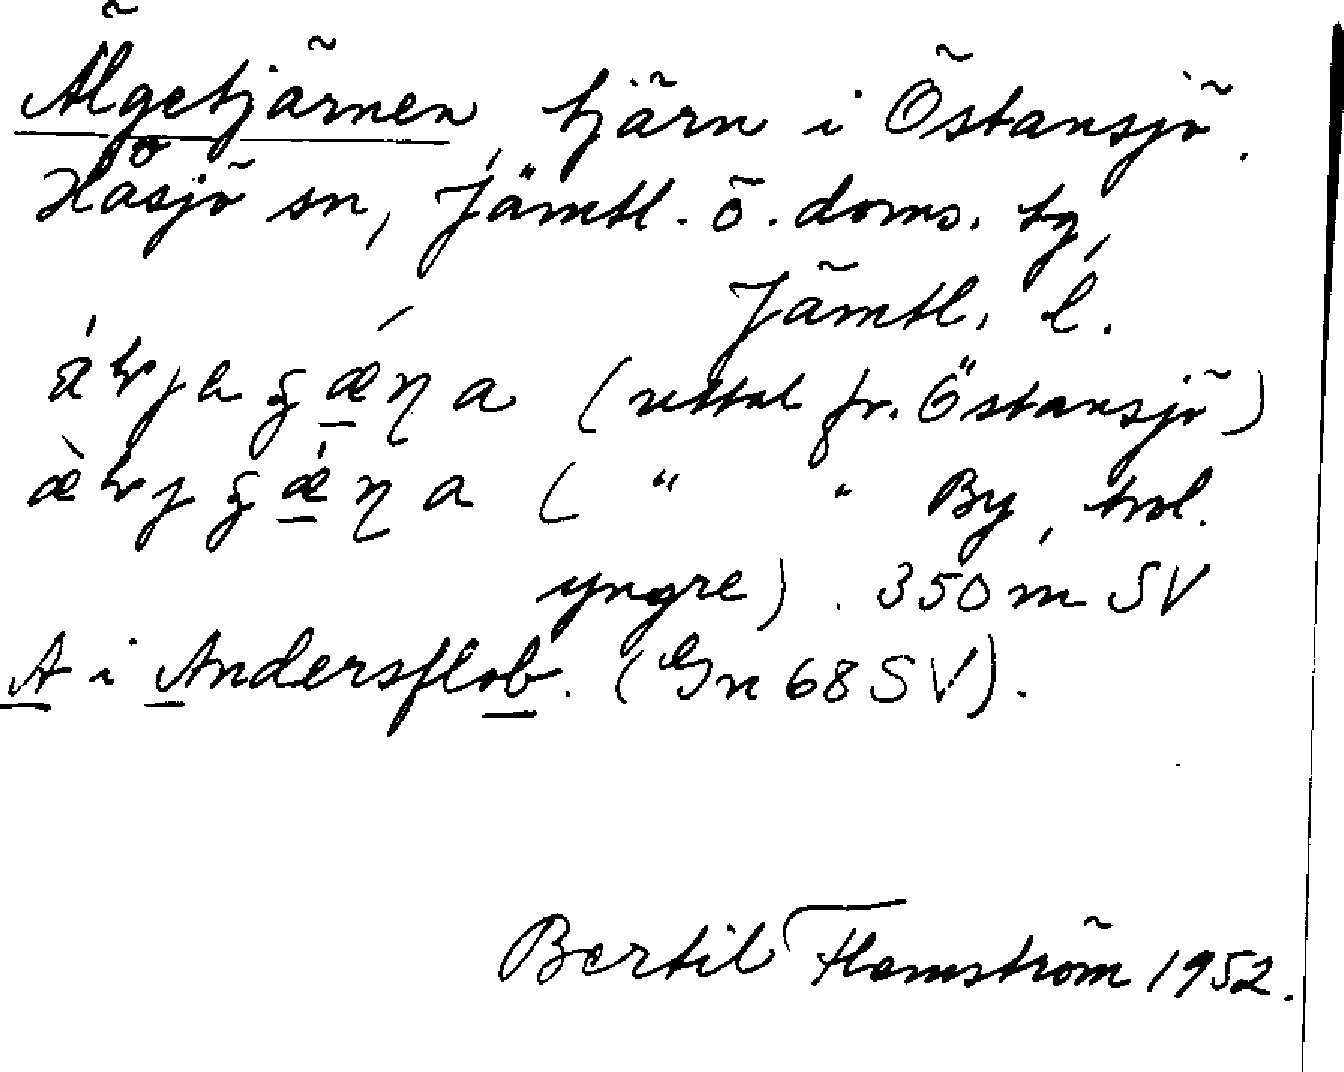 Älgetjärnen, tjärn i Östansjö.
Håsjö sn, Jämtl. ö. doms. tg,
Jämtl. l.
(uttal fr. Östansjö)
( " " By, trol.
yngre). 350 m SV
A i Andersflob. (Gn 68 SV).
Bertil Flemström 1952.